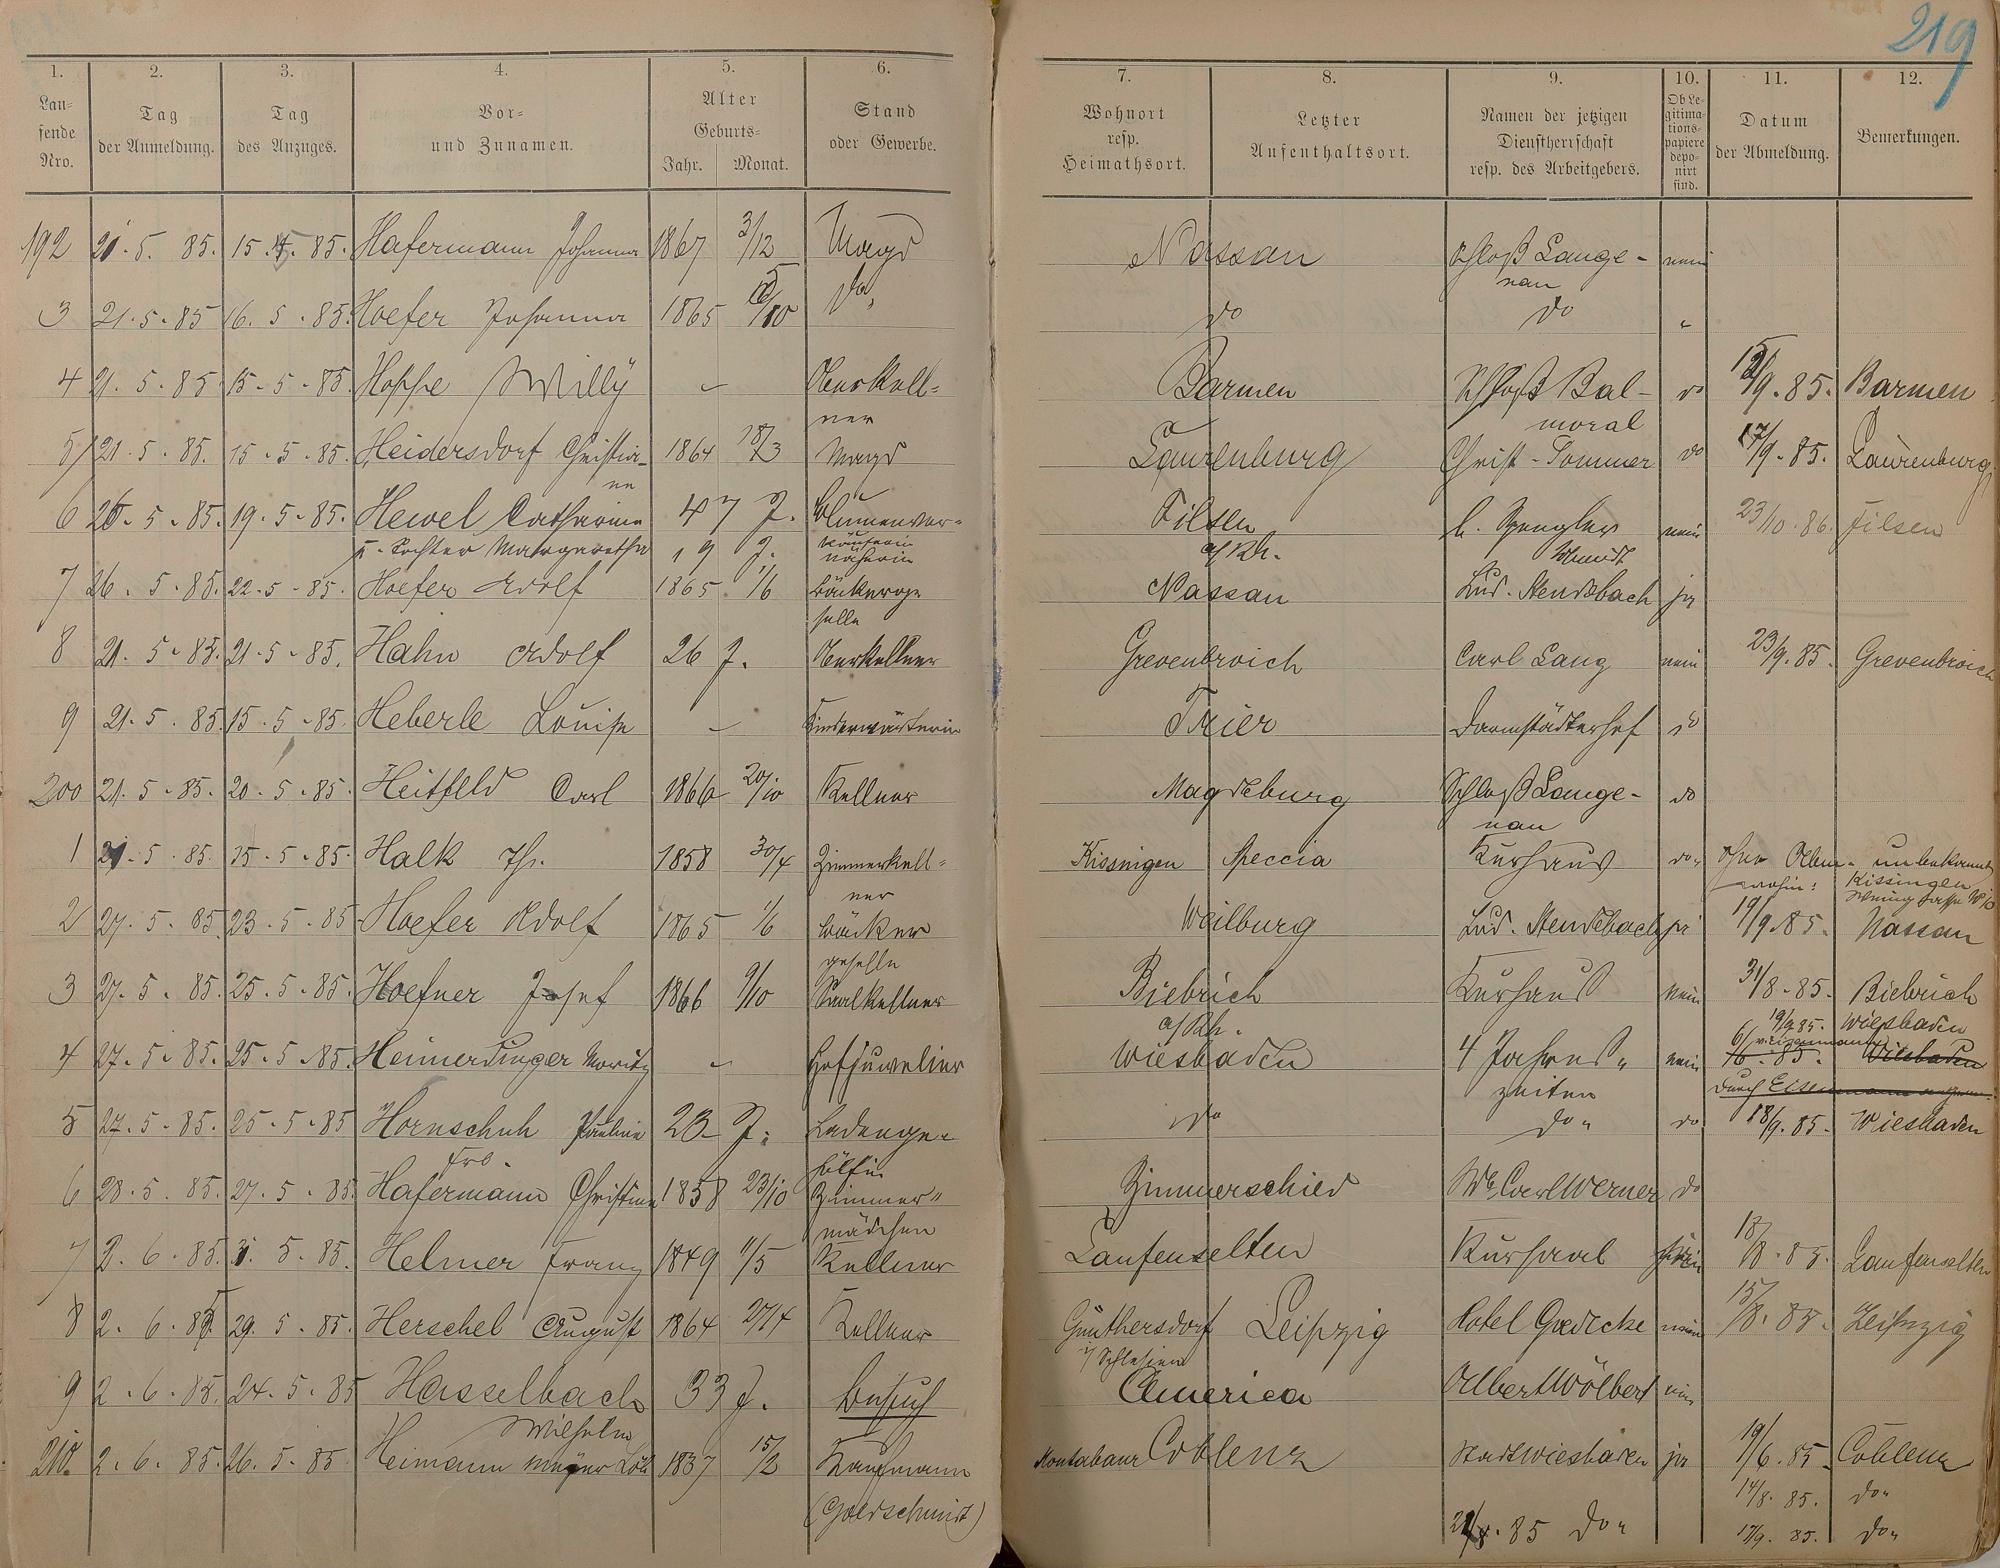 219
1. 2. 3. 4. 5. 6. 7. 8. 9. 10. 11. 12.
Lau-
fende
Nro.
Tag
der Anmeldung.
Tag
des Anzuges.
Vor-
und Zunamen.
Alter
Geburts-
Jahr. Monat.
Stand
oder Gewerbe.
Wohnort
resp.
Heimathsort.
Letzter
Aufenthaltsort.
Namen der jetzigen
Dienstherrschaft
resp. des Arbeitgebers.
Ob Le-
gitima-
tions-
papiere
depo-
nirt
sind.
Datum
der Abmeldung.
Bemerkungen.
192 21. 5. 85. 15. 5. 85. Hafermann Johanna 1867 3/12 Magd Nassau Schloß Lange- nein
nau
3 21. 5. 85 16. 5. 85. Hoefer Johanna 1865 /10 do do do "
4 21. 5. 85 15. 5. 85. Hoppe Willÿ – Oberkell= Barmen Schloß Bal- do /9. 85. Barmen
ner moral
5 21. 5. 85. 15. 5. 85. Heidersdorf Christia- 1864 18/3 Magd Laurenburg Christ. Sommer do 17/9. 85. Laurenburg
ne
6 26. 5. 85. 19. 5. 85. Hewel Catharina 47 J. Blumenver= Filsen h. Spengler nein 23/10. 86. Filsen
u. Tochter Margaretha 19 J. käuferin a/Rh.
näherin
7 26. 5. 85. 22. 5. 85. Hoefer Adolf 1865 1/6 Bäckerge Nassau Lud. Stendebach ja
selle
8 21. 5. 85. 21. 5. 85. Hahn Adolf 26 J. Oberkellner Grevenbroich Carl Lang nein 23/9. 85. Grevenbroich
9 21. 5. 85 15. 5. 85. Heberle Louise – Kinderwärterin Trier Darmstädterhof do
200 21. 5. 85. 20. 5. 85. Heitfeld Carl 1866 20/10 Kellner Magdeburg Schloß Lange- do
nau
1 21. 5. 85. 15. 5. 85. Halk Th. 1858 30/4 Zimmerkell= Kissingen Speccia Kurhaus do" ohne Abm- unbekannt
ner wohin: Kissingen
2 27. 5. 85. 23. 5. 85 Hoefer Adolf 1865 1/6 Bäcker Weilburg Lud. Stendebach ja 19/9. 85. Nassau
geselle
3 27. 5. 85. 25. 5. 85. Hoefner Josef 1866 9/10 Saalkellner Biebrich Kurhaus nein 31/8. 85. Biebrich
a/Rh. 19/9 85. Wiesbaden
4 27. 5. 85. 25. 5. 85. Heimerdinger Moritz – Hofjuwelier Wiesbaden 4 Jahres" nein 6/ 85. Wiesbaden
zeiten durch
5 27. 5. 85. 25. 5. 85 Hornschuh Pauline 23 J. Ladenge= do do" do 18/9. 85. Wiesbaden
Frl. hülfin
6 28. 5. 85. 27. 5. 85. Hafermann Christine 1858 23/10 Zimmer" Zimmerschied We. Carl Werner do
mädchen
7 2. 6. 85. 5. 85. Helmer Franz 1849 11/5 Kellner Laufenselten Kursaal 18/8. 85. Laufenselten
8 2. 6. 85. 29. 5. 85. Herschel August 1864 27/4 Kellner Günthersdorf Leipzig Hotel Goedicke nein 15/8. 85. Leipzig
i/Schlesien
9 2. 6. 85. 24. 5. 85 Hasselbach 33 J. Besuch America Albert Wölbert nein
Wilhelm
210. 2. 6. 85. 26. 5. 85 Heimann Meyer Löb 1837 15/2 Kaufmann Montabaur Coblenz Stadt Wiesbaden ja 19/6. 85. Coblenz
14/8. 85. do"
(Goldschmidt) 85 do" 17/9. 85. do"